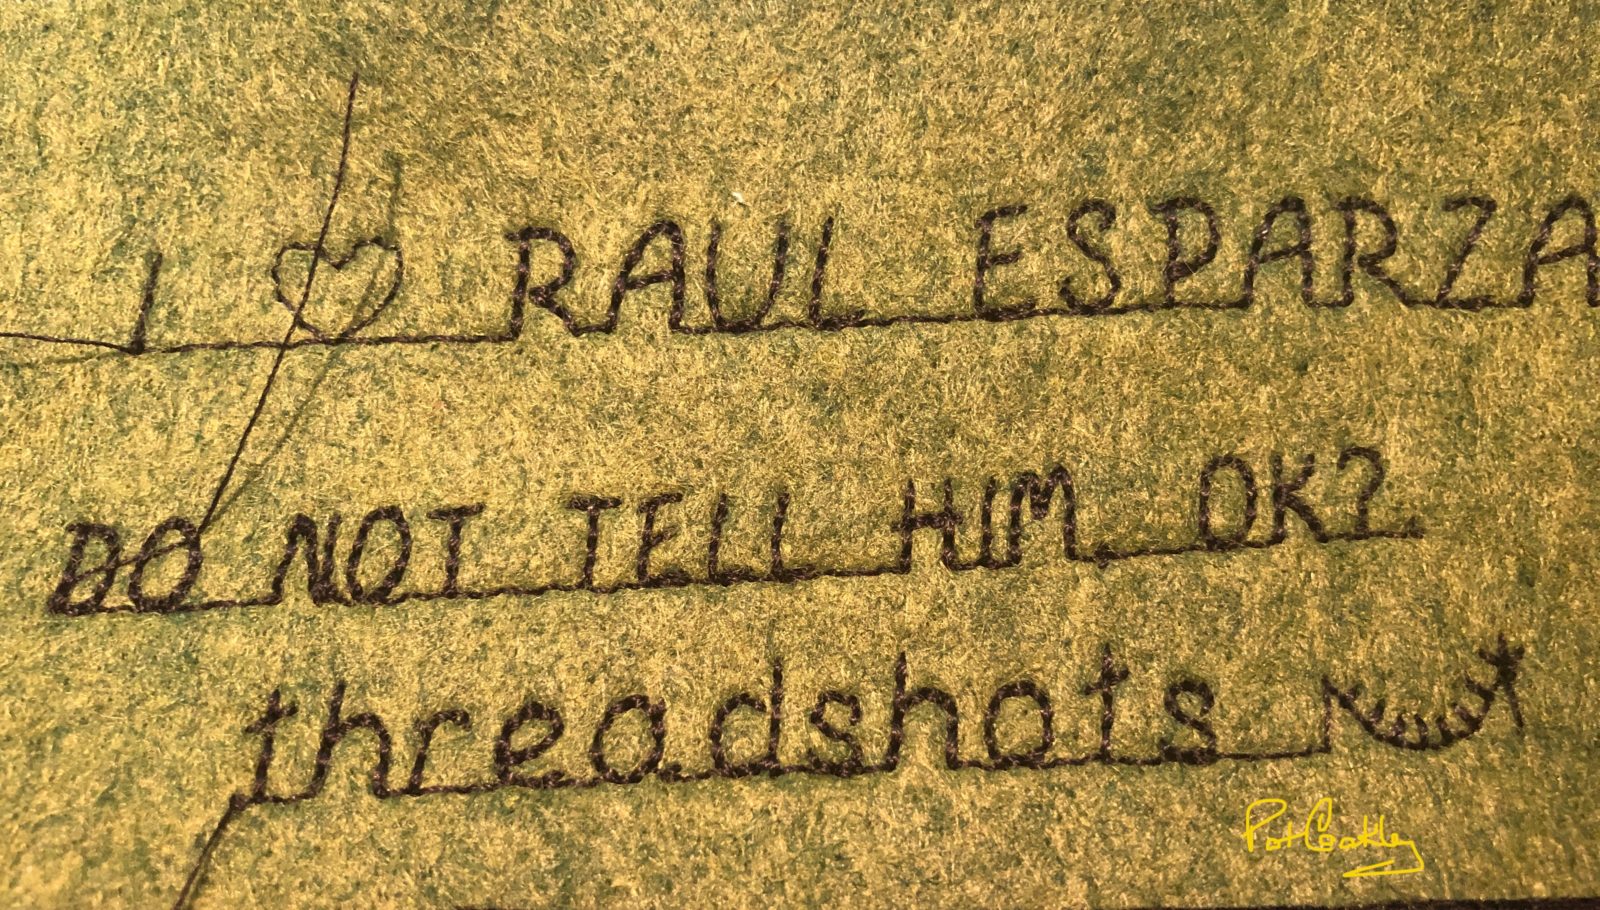 I ♡ RAUL ESPARZA
DO NOT TELL HIM OK?
threadshots
Pat Coakley